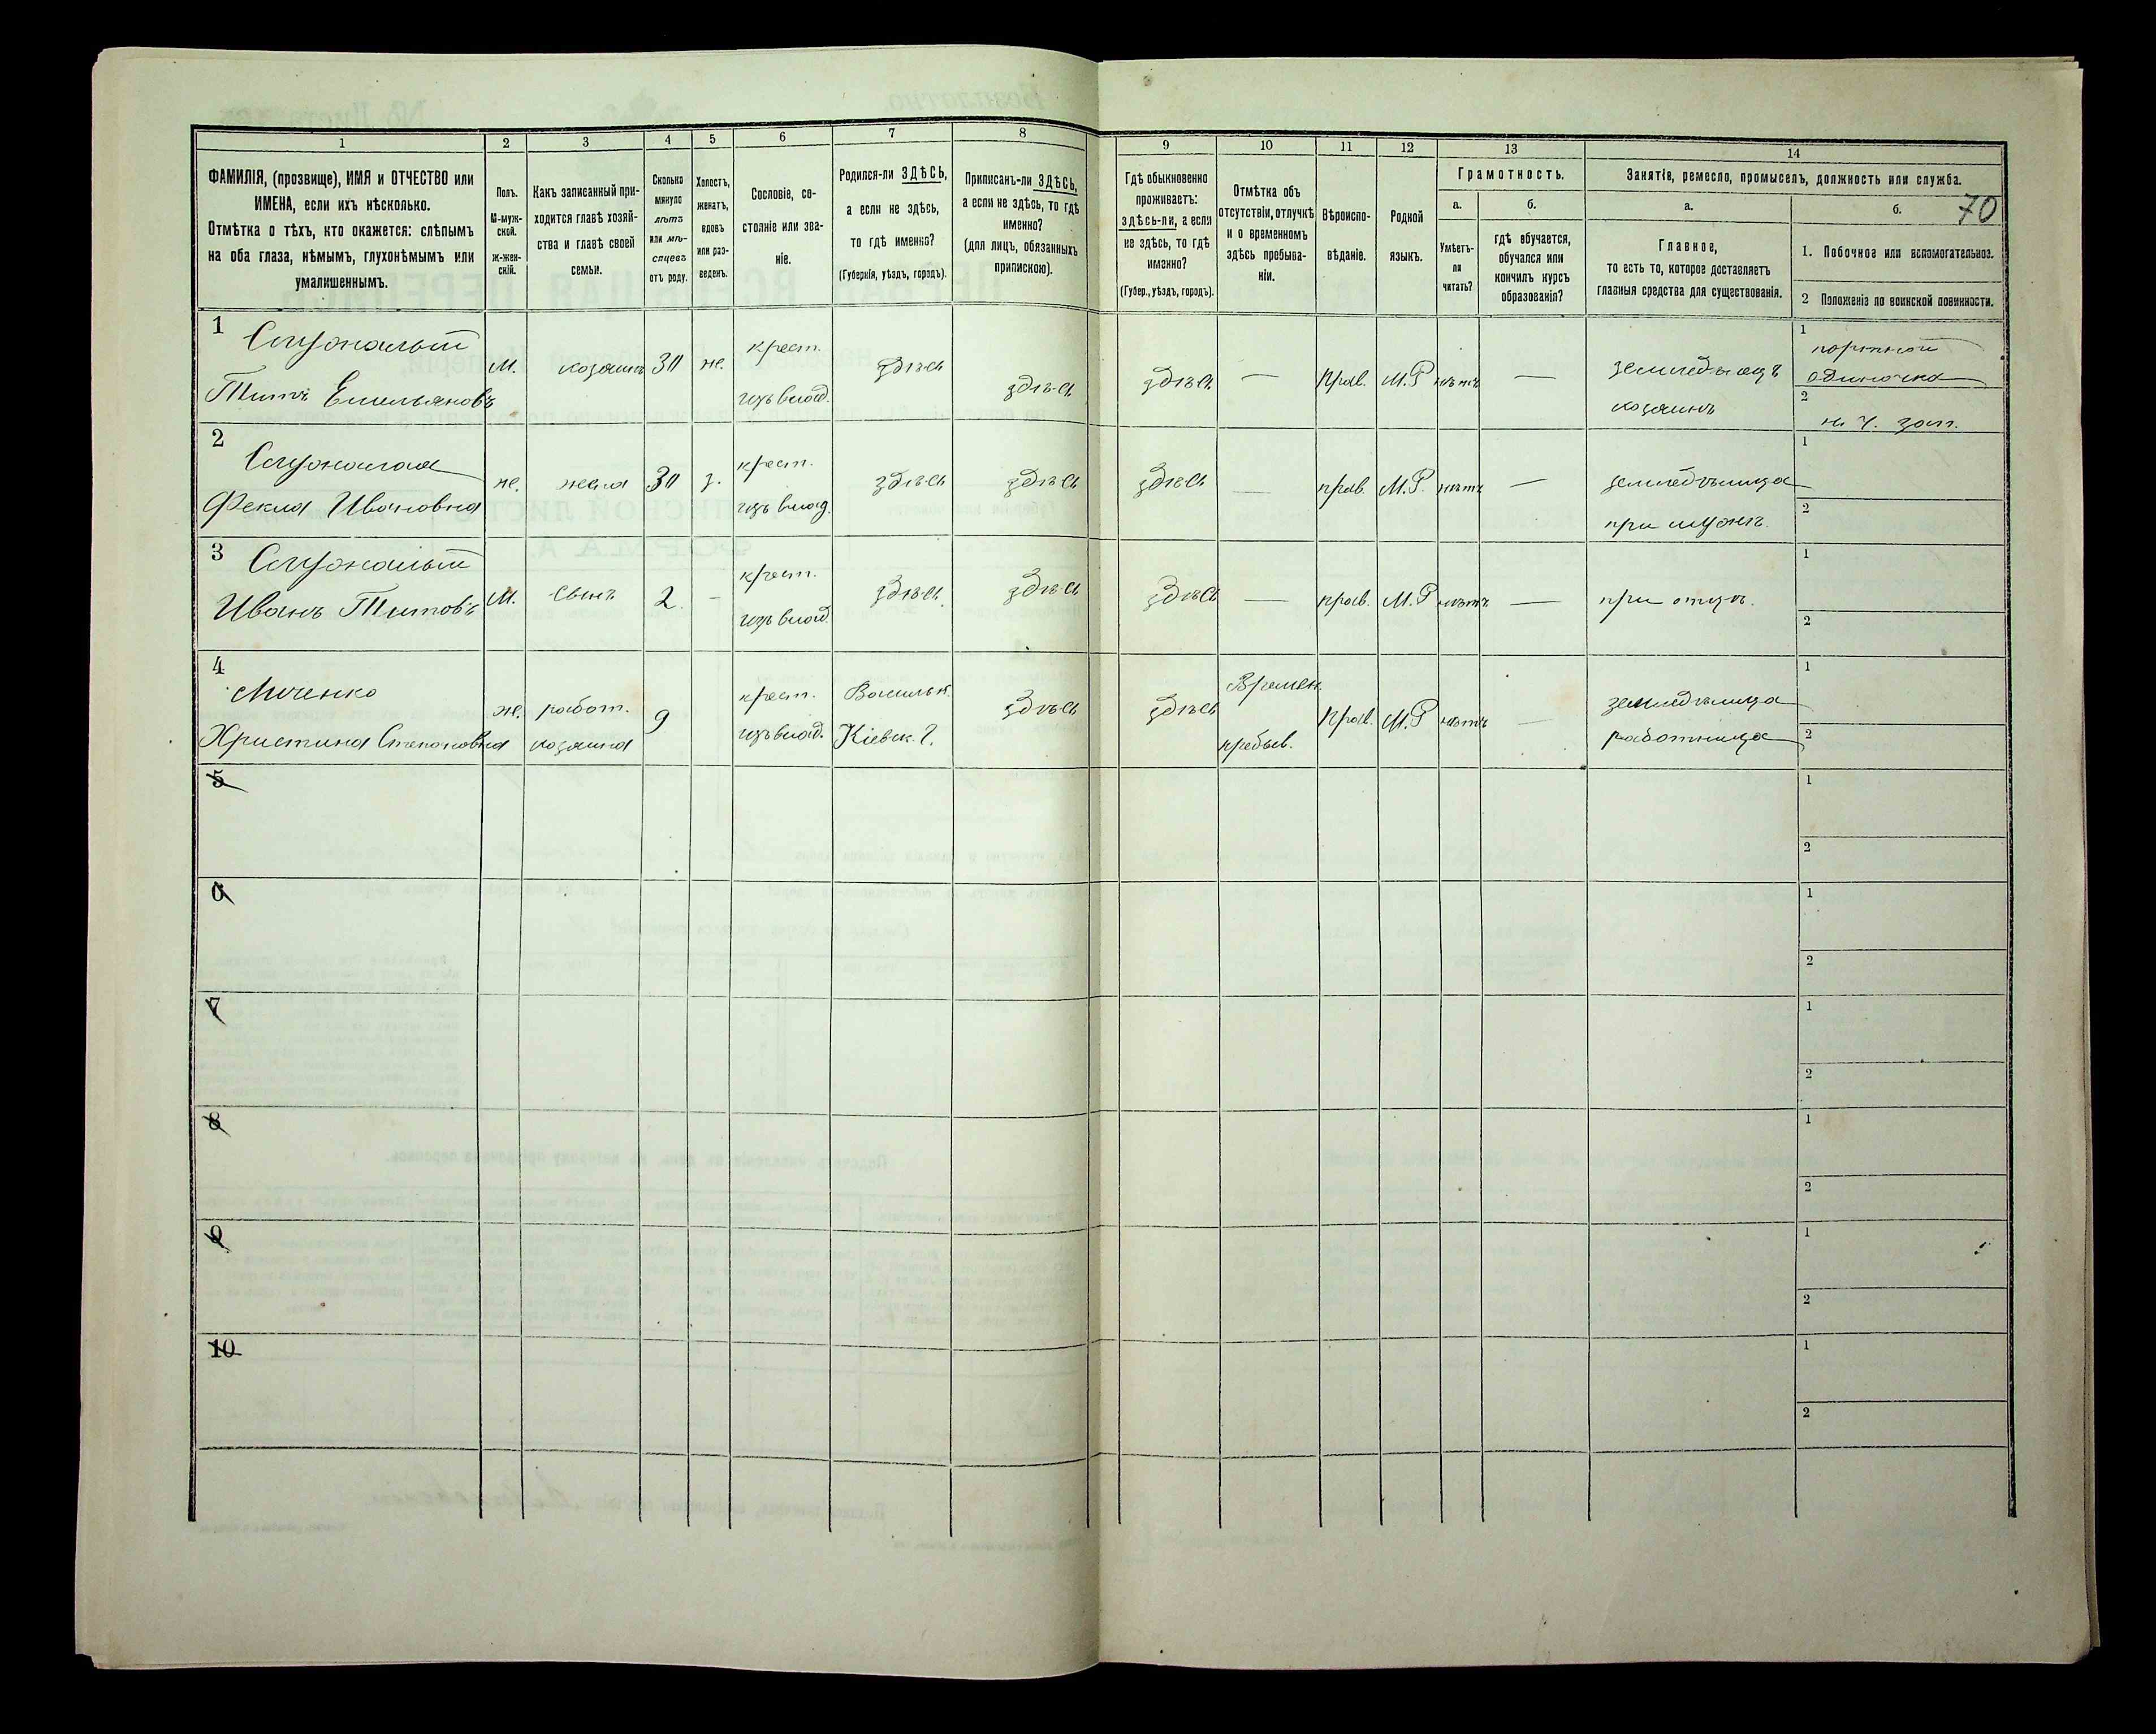 1
2
3
4
5
6
7
8
ФАМИЛІЯ, (прозвище), ИМЯ и ОТЧЕСТВО или
ИМЕНА, если ихъ нѣсколько.
Отмѣтка о тѣхъ, кто окажется: слѣпымъ
на оба глаза, нѣмымъ, глухонѣмымъ или
умалишеннымъ.
Полъ.
М-муж-
ской.
ж-жен-
скій.
Какъ записанный при-
ходится главѣ хозяй-
ства и главѣ своей
семьи.
Сколько
минуло
лѣтъ
или мѣ-
сяцевъ
отъ роду.
Холостъ,
женатъ,
вдовъ
или раз-
веденъ.
Сословіе, со-
стояніе или зва-
ніе.
Родился-ли ЗДѢСЬ,
а если не здѣсь,
то гдѣ именно?
(Губернія, уѣздъ, городъ).
Приписанъ-ли ЗДѢСЬ,
а если не здѣсь, то гдѣ
именно?
(для лицъ, обязанныхъ
припискою).
9
10
11
12
13
14
Гдѣ обыкновенно
проживаетъ:
здѣсь-ли, а если
не здѣсь, то гдѣ
именно?
(Губер., уѣздъ, городъ).
Отмѣтка объ
отсутствіи, отлучкѣ
и о временномъ
здѣсь пребыва-
ніи.
Вѣроиспо-
вѣданіе.
Родной
языкъ.
Грамотность.
а.
б.
Умѣетъ-
ли
читать?
гдѣ обучается,
обучался или
кончилъ курсъ
образованія?
Занятіе, ремесло, промыселъ, должность или служба.
а.
б.
70
Главное,
то есть то, которое доставляетъ
главныя средства для существованія.
1. Побочное или вспомогательное.
2 Положеніе по воинской повинности.
1
Титъ Емельяновъ
М.
хозяинъ
30
ж.
крест.
изъ влад.
здѣсь
здѣсь
здѣсь
—
прав.
М.Р
нѣтъ
—
земледѣлецъ
хозяинъ
1
портной
одиночка
2
2
Фекла Ивановна
ж.
жена
30
з.
крест.
изъ влад.
здѣсь
здѣсь
здѣсь
—
прав.
М.Р.
нѣтъ
—
земледѣлица
при мужѣ.
1
2
3
Иванъ Титовъ
М.
сынъ
2
—
крест.
изъ влад.
здѣсь
здѣсь
здѣсь
—
прав.
М.Р
нѣтъ
—
при отцѣ.
1
2
4
Христина Степановна
ж.
работ.
хозяина
9
крест.
изъ влад.
Васильк.
Кіевск. Г.
здѣсь
здѣсь
Времен.
пребыв.
прав.
М.Р
нѣтъ
—
земледѣлица
работница
1
2
5
1
2
6
1
2
7
1
2
8
1
2
9
1
2
10
1
2